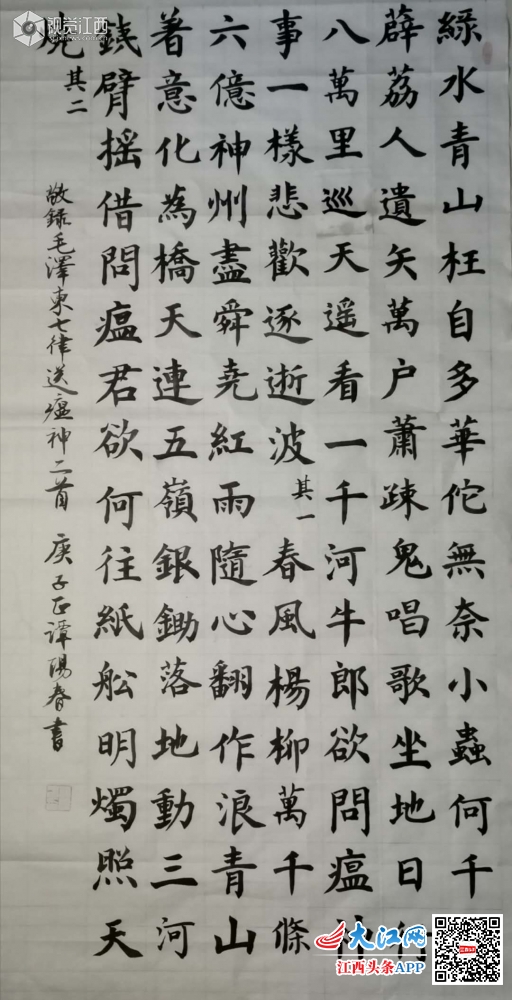 綠水青山枉自多華佗無奈小蟲何千
薜荔人遺矢萬户蕭疎鬼唱歌坐地日行
八萬里巡天遥看一千河牛郎欲問瘟神
事一樣悲歡逐逝波 其一 春風楊柳萬千條
六億神州盡舜堯紅雨隨心翻作浪青山
著意化為橋天連五嶺銀鋤落地動三河
鐵臂摇借問瘟君欲何往紙舩明燭照天
燒 其二
敬錄毛澤東七律送瘟神二首 庚子正譚陽春書
视觉江西
大江网
江西头条APP